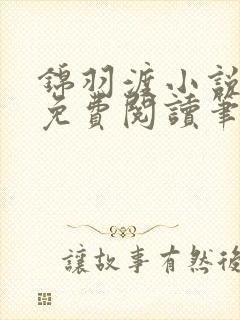 錦羽渡小說
免費閱讀筆
讓故事有然後